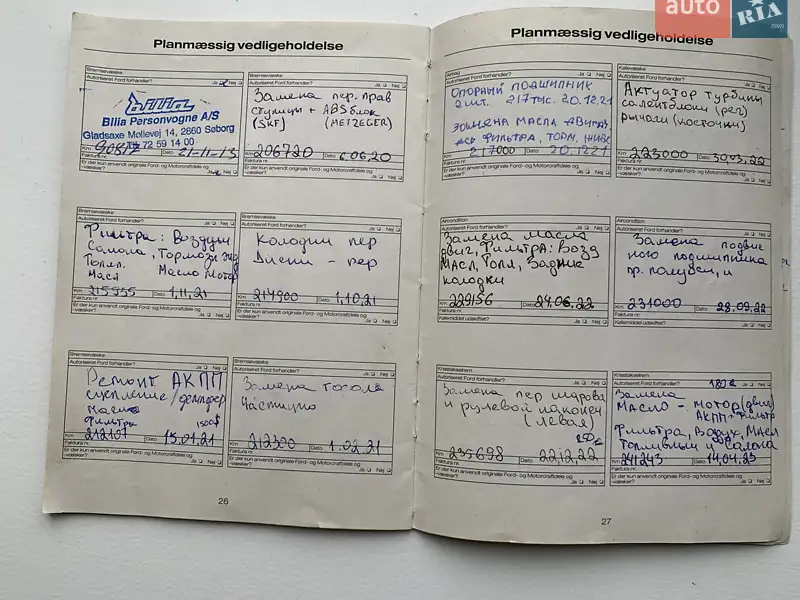 Planmæssig vedligeholdelse
Bremsevæske
Autoriseret Ford forhandler?
Ja Nej
Bilia
Bilia Personvogne A/S
Gladsaxe Møllevej 14, 2860 Søborg
Tlf. 72 59 14 00
Km 90812 Dato 21-11-13
Faktura nr.
Er der kun anvendt originale Ford- og Motorcraftdele og
væsker? Ja Nej
Bremsevæske
Autoriseret Ford forhandler?
Ja Nej
Замена пер. прав
ступицы + ABS блок
(SKF) (METZEGER)
Km 206720 Dato 6.06.20
Faktura nr.
Er der kun anvendt originale Ford- og Motorcraftdele og
væsker? Ja Nej
Bremsevæske
Autoriseret Ford forhandler?
Ja Nej
Фильтра: Воздуш
Салона, Тормозн
Топл.
Масл Масло Мотор
Km 215955 Dato 1,11,21
Faktura nr.
Er der kun anvendt originale Ford- og Motorcraftdele og
væsker? Ja Nej
Bremsevæske
Autoriseret Ford forhandler?
Ja Nej
Колодки пер
Диски - пер
Km 214900 Dato 1,10,21
Faktura nr.
Er der kun anvendt originale Ford- og Motorcraftdele og
væsker? Ja Nej
Bremsevæske
Autoriseret Ford forhandler?
Ja Nej
Ремонт АКПП
сцепление/демпфер
масло
Фильтра 1500$
Km 212101 Dato 15.01.21
Faktura nr.
Er der kun anvendt originale Ford- og Motorcraftdele og
væsker? Ja Nej
Bremsevæske
Autoriseret Ford forhandler?
Ja Nej
Замена
частично
Km 212300 Dato 1.02.21
Faktura nr.
Er der kun anvendt originale Ford- og Motorcraftdele og
væsker? Ja Nej
26
Planmæssig vedligeholdelse
Autoriseret Ford forhandler?
Ja Nej
ОПОРНИЙ ПОДШИПНИК
2 шт. 217тыс. 20.12.21
ФИЛЬТРА, ТОРМ.
Km 217000 Dato 20.12.21
Faktura nr.
Er der kun anvendt originale Ford- og Motorcraftdele og
væsker? Ja Nej
Kølevæske
Autoriseret Ford forhandler?
Ja Nej
Актуатор турбины
салентблоки (рег)
рычаги (косточки)
Km 223000 Dato 30.03.22
Faktura nr.
Er der kun anvendt originale Ford- og Motorcraftdele og
væsker? Ja Nej
Aircondition
Autoriseret Ford forhandler?
Ja Nej
Замена масла
двиг, Фильтра: Возд
Масл, Топл, Задние
колодки
Km 229156 Dato 24.06.22
Faktura nr.
Er der kun anvendt originale Ford- og Motorcraftdele og
væsker? Ja Nej
Kølemiddel udskiftet? Ja Nej
Aircondition
Autoriseret Ford forhandler?
Ja Nej
Замена подвес
ного подшипника
пр. полуоси, и
Km 231000 Dato 28.09.22
Faktura nr.
Er der kun anvendt originale Ford- og Motorcraftdele og
væsker? Ja Nej
Kølemiddel udskiftet? Ja Nej
Autoriseret Ford forhandler?
Ja Nej
Замена пер шарова
и рулевой наконеч
(левая)
Km 235698 Dato 22,12,22
Faktura nr.
Er der kun anvendt originale Ford- og Motorcraftdele og
væsker? Ja Nej
Autoriseret Ford forhandler?
Ja Nej
Замена
МАСЛО - МОТОР (двиг)
АКПП + Фильтр
Фильтра, Воздух, Масл
Топливный и Салона
Km 241243 Dato 14.04.23
Faktura nr.
Er der kun anvendt originale Ford- og Motorcraftdele og
væsker? Ja Nej
27
auto
RIA
.com